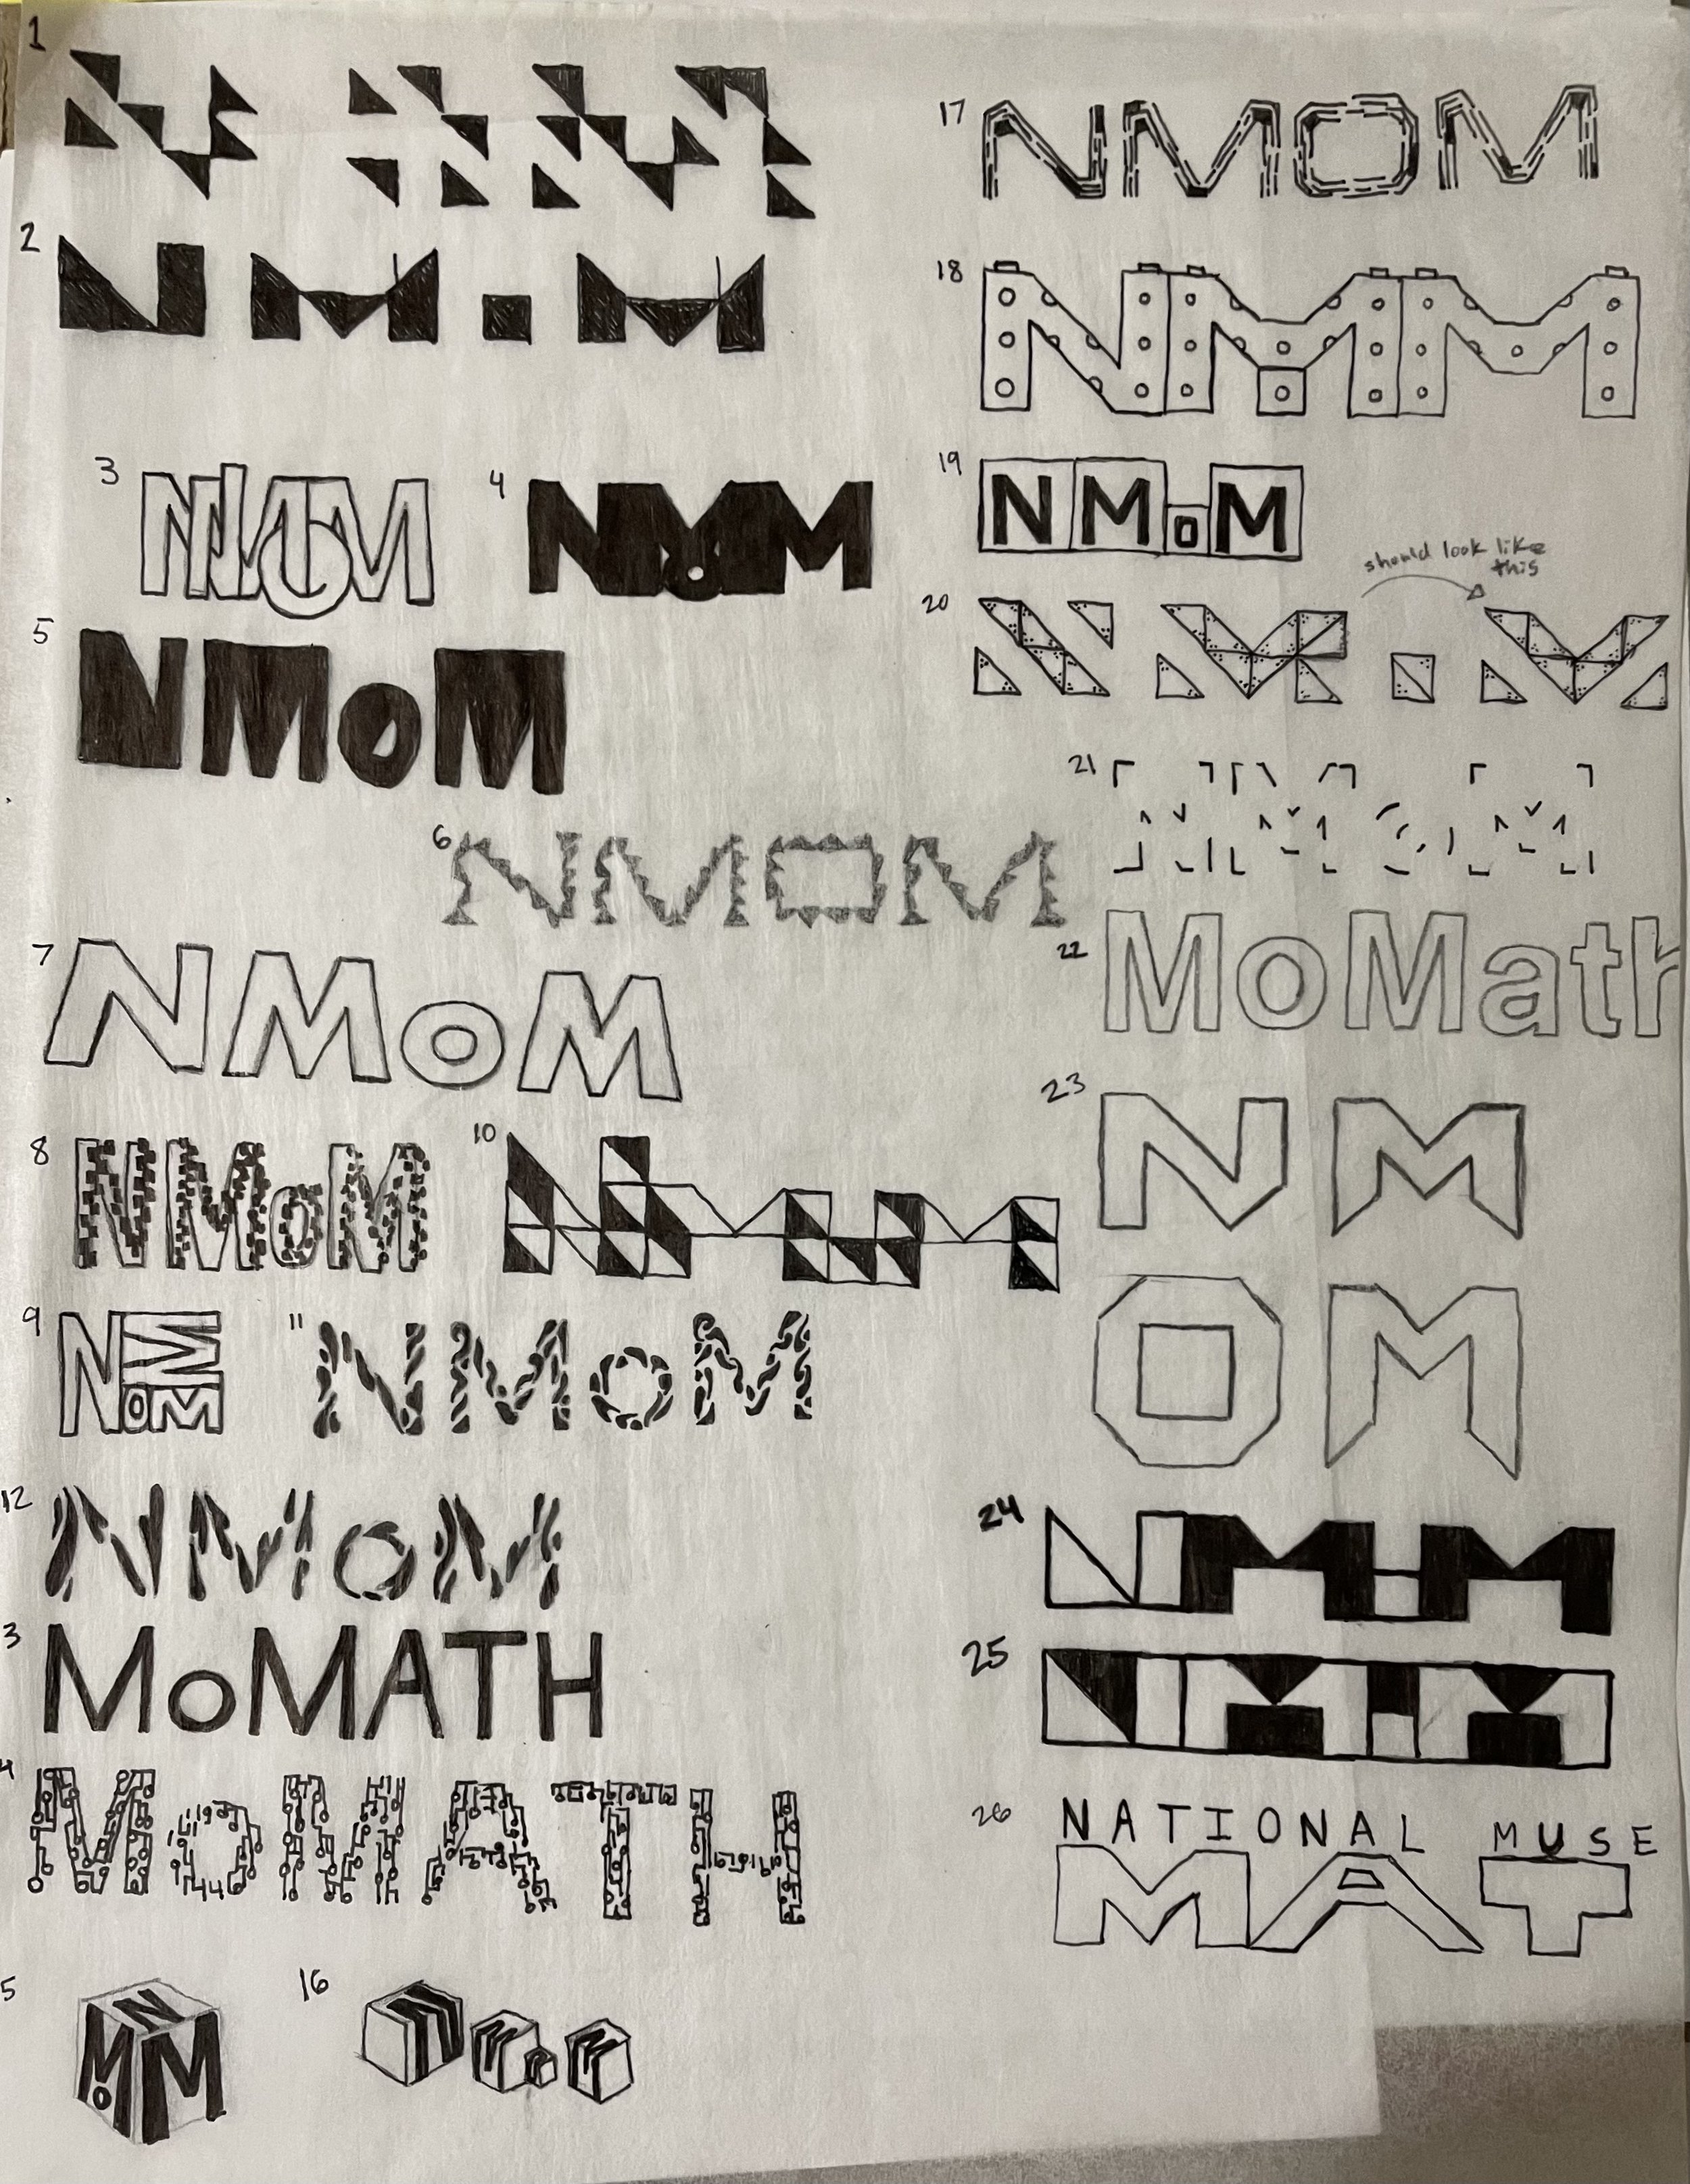 1
2
3
NMOM
4
NMOM
5
NMoM
6
NMOM
7
NMoM
8
NMoM
10
9
N M oM
11
NMoM
12
NMoM
3
MoMATH
4
MoMATH
5
N
M
o
M
16
17
NMOM
18
NMM
19
NMoM
should look like
this
20
21
NMOM
22
MoMath
23
NM
OM
24
25
26
NATIONAL MUSE
MAT